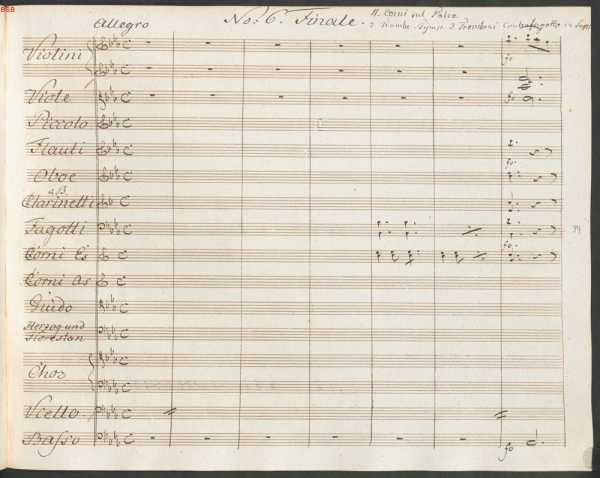 868
Allegro
No: 6. Finale.
4 Corni sul Palco
2 Trombe Tymp. 3 Tromboni Contrafagotto in Supl
Violini
Viole
Piccolo
Flauti
Oboe
a B.
Clarinetti
Fagotti
Corni Es
Corni As
Guido
Herzog und
Florestan
Chor
Vcello
Basso
fo
fo
fo
fo
fo